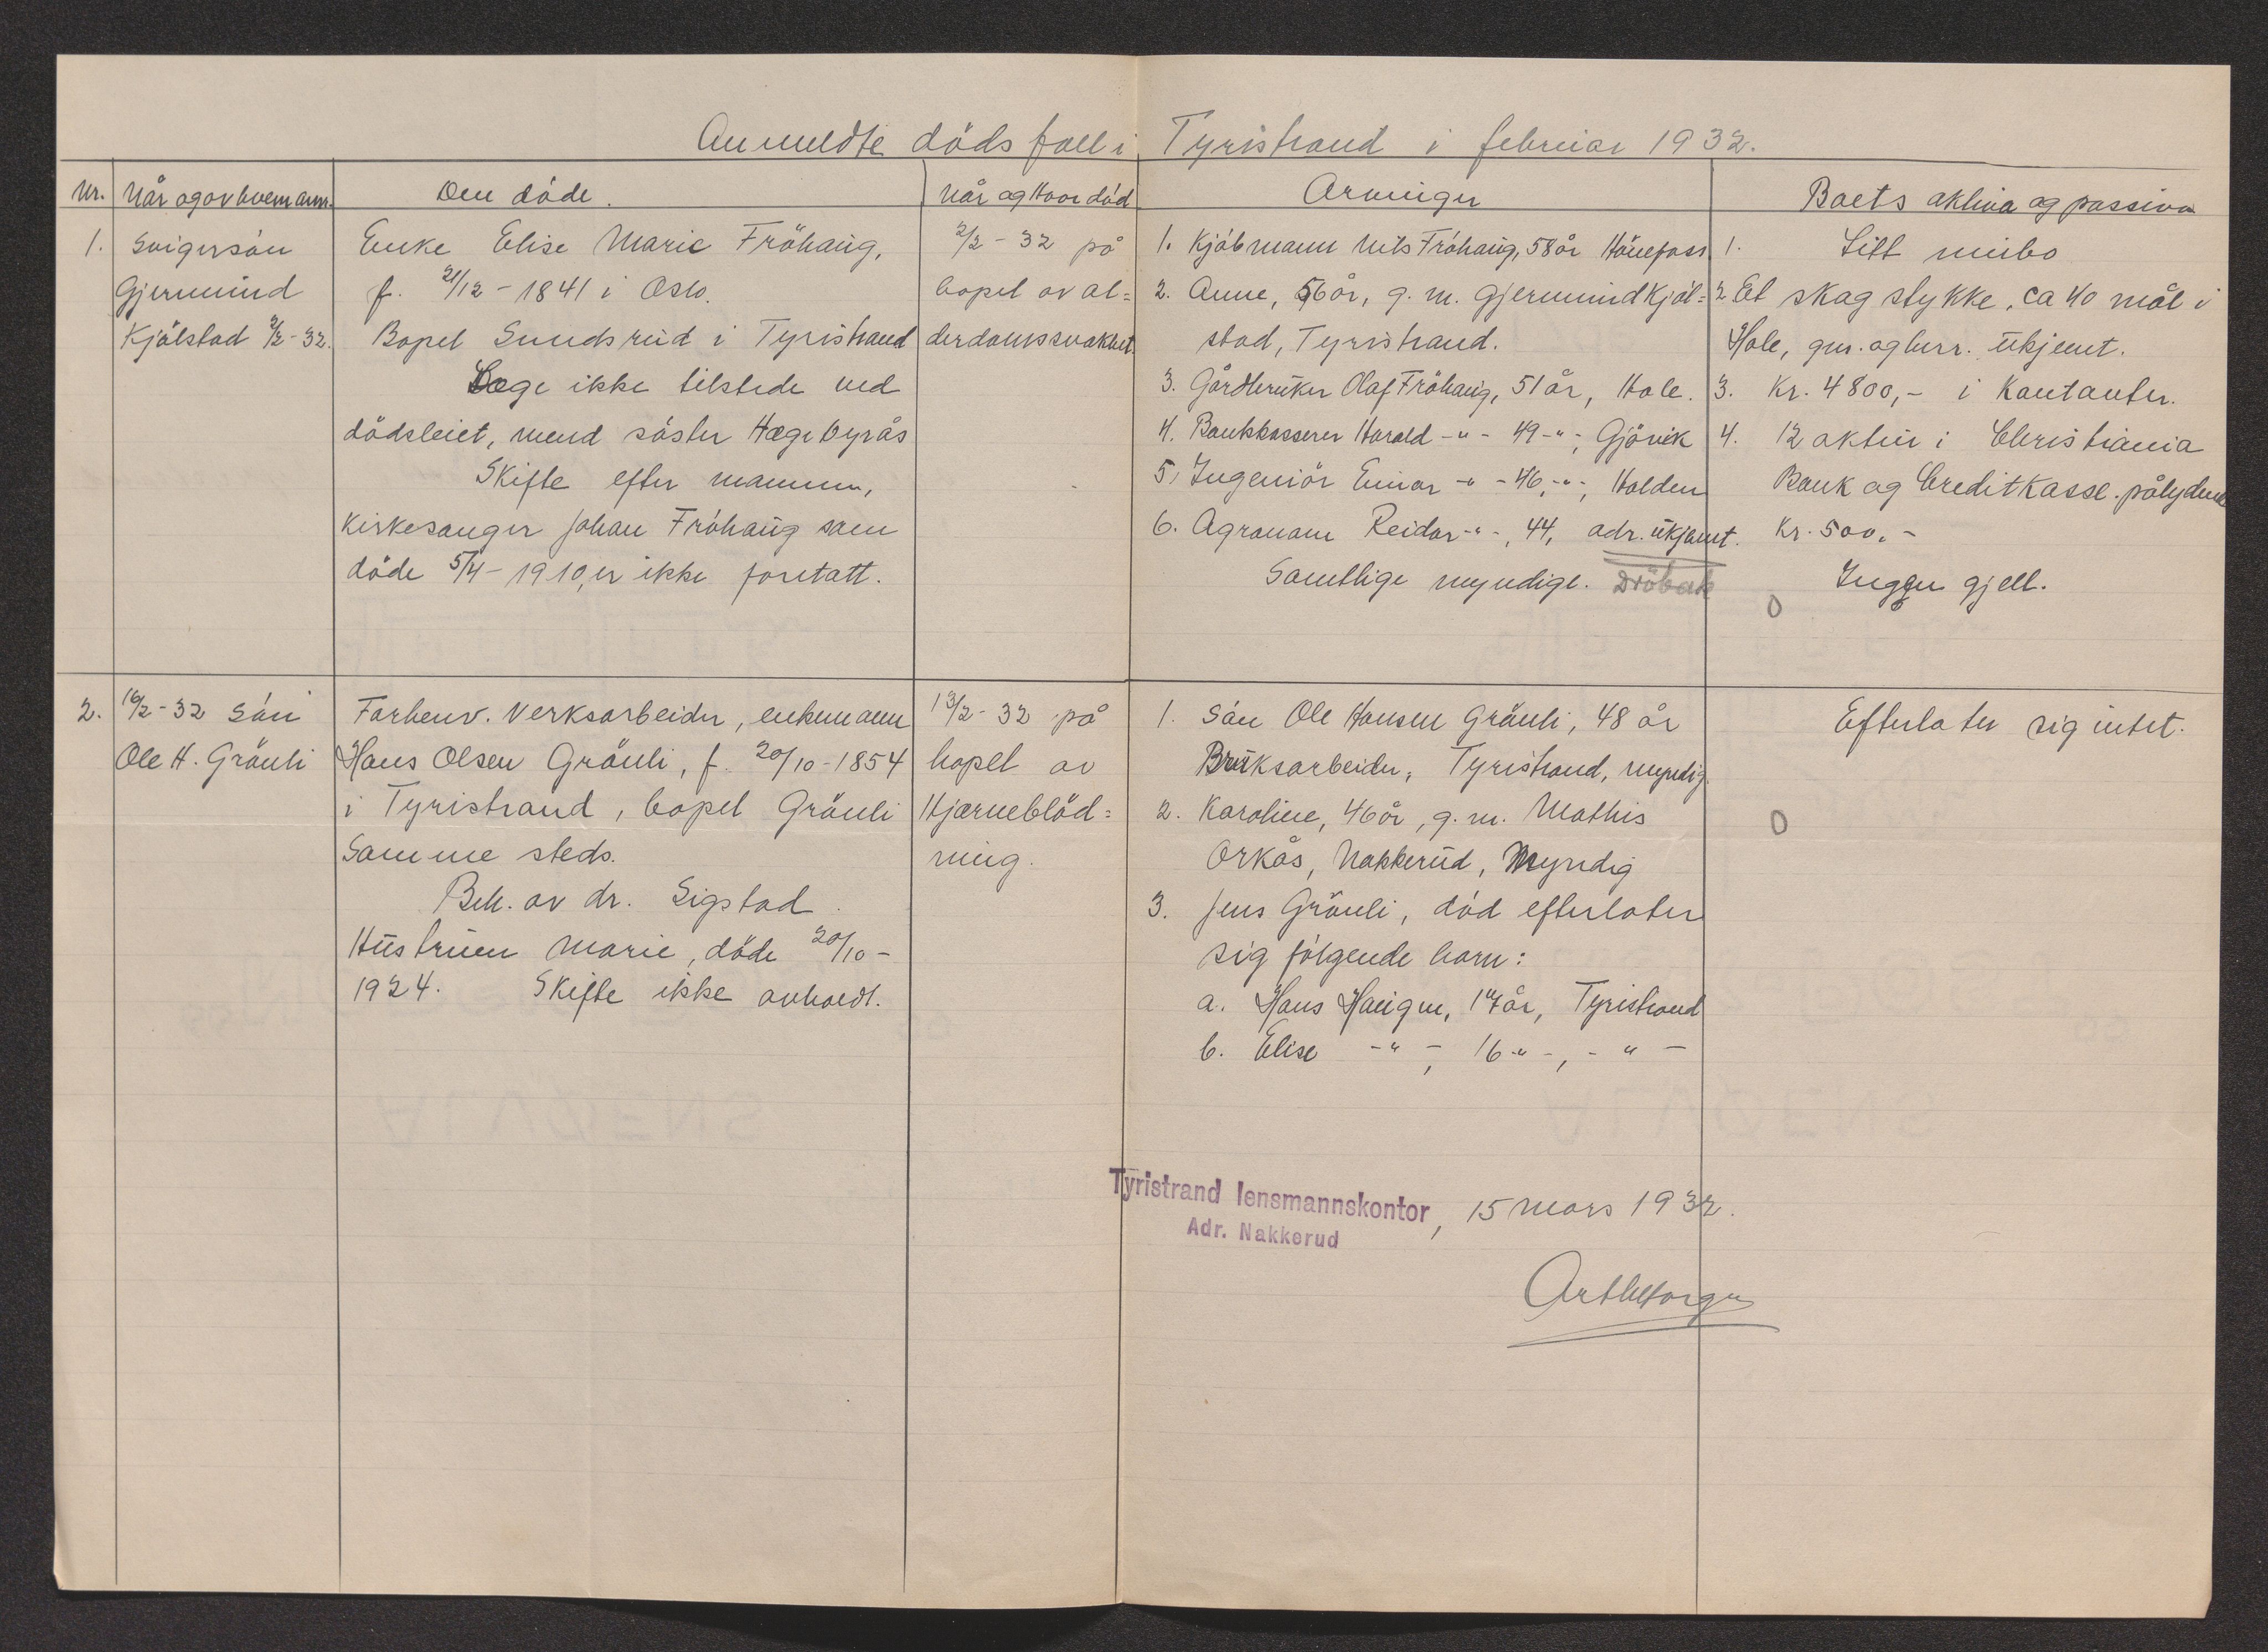 Anmeldte dödsfall i Tyristrand i februar 1932.
Nr. Når og av hvem anm. Den döde. Når og Hvor död Arvinger Boets aktiva og passiva
1. Svigersön
Gjermund
Kjölstad 2/2-32.
Enke Elise Marie Fröhaug,
f. 21/12-1841 i Oslo.
Bopel Sundsrud i Tyristrand
Læge ikke tilstede ved
dödsleiet, mend söster Hægebyrås
Skifte efter mannen,
kirkesanger Johan Fröhaug som
döde 5/4-1910, er ikke foretatt.
2/2-32 på
bopel av al=
derdomssvakhet.
1. Kjöbmann Nils Fröhaug, 58 år Hönefoss
2. Anne, 56 år, g. m. Gjermund Kjöl=
stad, Tyristrand.
3. Gårdbruker Olaf Fröhaug, 51 år, Hole.
4. Bankkasserer Harald -"- 49-"-, Gjövik
5. Ingeniör Einar -"- 46,-"-, Halden
6. Agronom Reidar -"-, 44, adr. ukjent.
Samtlige myndige. Dröbak
1. Litt innbo
2 Et skogstykke, ca 40 mål i
Hole, gnr. og bnr. ukjent.
3. Kr. 4800,- i Kontanter.
4. 12 aktier i Christiania
Bank og Creditkasse. pålydende
Kr. 500.-
Inggen gjell.
0
2. 16/2-32 Sön
Ole H. Grönli
Forhenv. Verksarbeider, enkemann
Hans Olsen Grönli, f. 20/10-1854
i Tyristrand, bopel Grönli
Samme steds.
Beh. av dr. Sigstad.
Hustruen Marie, döde 20/10-
1924. Skifte ikke avholdt.
13/2-32 på
bopel av
Hjerneblöd=
ning.
1. Sön Ole Hansen Grönli, 48 år
Bruksarbeider, Tyristrand, myndig.
2. Karoline, 46 år, g. m. Mathis
Orkås, Nakkerud, Myndig
3. Jens Grönli, död efterlater
sig fölgende barn:
a. Hans Haugen, 17 år, Tyristrand
b. Elise -"-, 16-"-, -"-
Efterlater sig intet.
0
Tyristrand lensmannskontor, 15 mars 1932.
Adr. Nakkerud